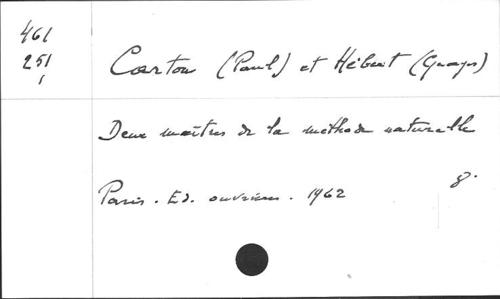 461
251
1
Carton (Paul) et Hébert (Georges)
Deux maîtres de la méthode naturelle
Paris. Ed. ouvrières. 1962 8°